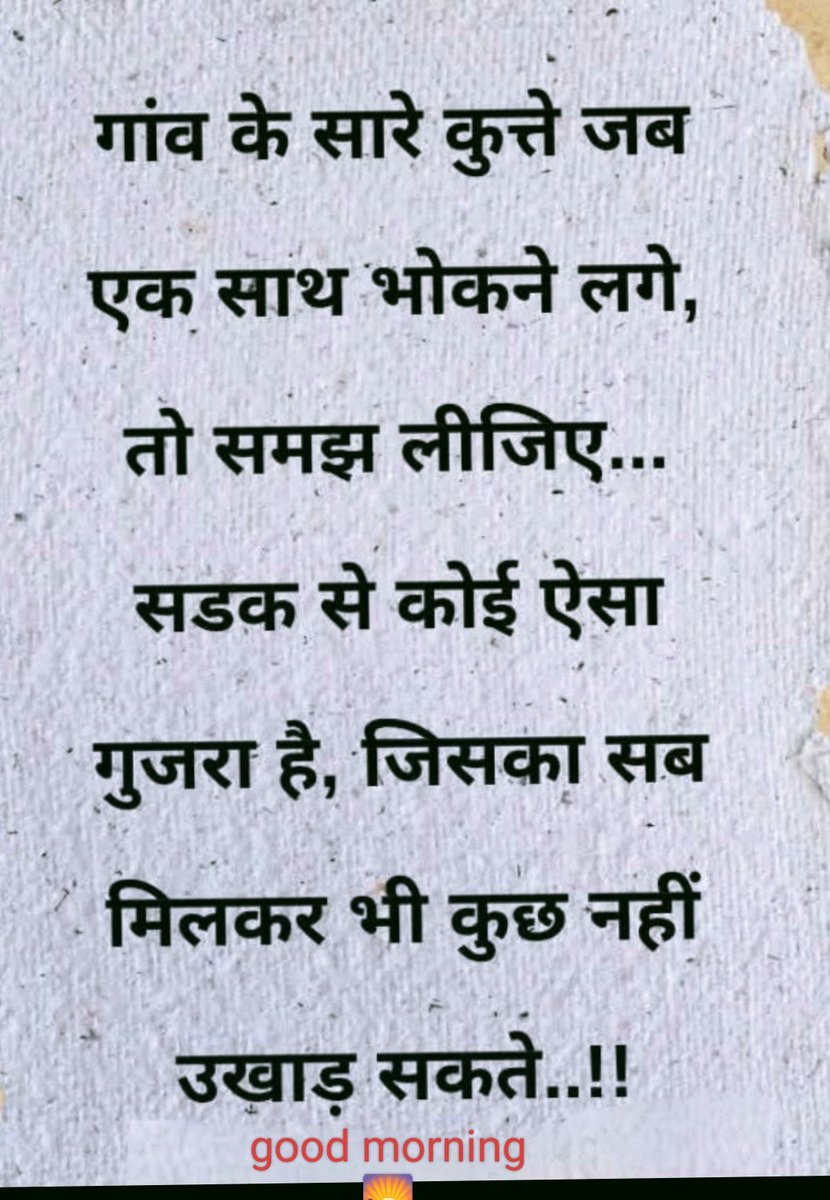 गांव के सारे कुत्ते जब
एक साथ भोकने लगे,
तो समझ लीजिए...
सडक से कोई ऐसा
गुजरा है, जिसका सब
मिलकर भी कुछ नहीं
उखाड़ सकते..!!
good morning